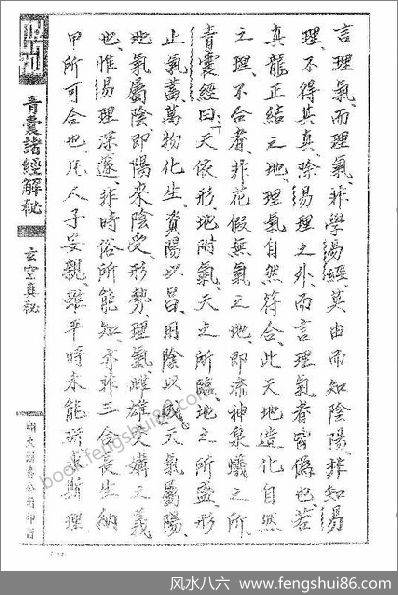 言理氣而理氣非學易經莫由而知陰陽非知易
理不得其真除易理之外而言理氣者皆偽也若
真龍正結之地理氣自然符合此天地造化自然
之理不合者非花假無氣之地即赤神集曦之所
青囊經曰天依形地附氣天之所臨地之所盛形
止氣蓄萬物化生資陽以昌用陰以成天氣屬陽
地氣屬陰即陽來陰受形勢理氣雌雄交媾之義
也惟易理深邃非時俗所能知亦非三合長生納
甲所可合也凡人子之親雖平時未能研斯理
青囊諸經解秘
玄空真秘
book.fengshui86.com
风水八六 www.fengshui86.com